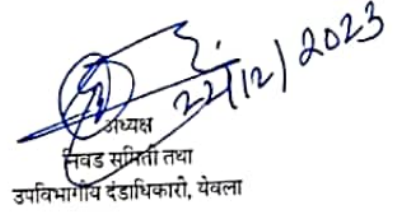 22/12/2023
अध्यक्ष
निवड समिती तथा
उपविभागीय दंडाधिकारी, येवला